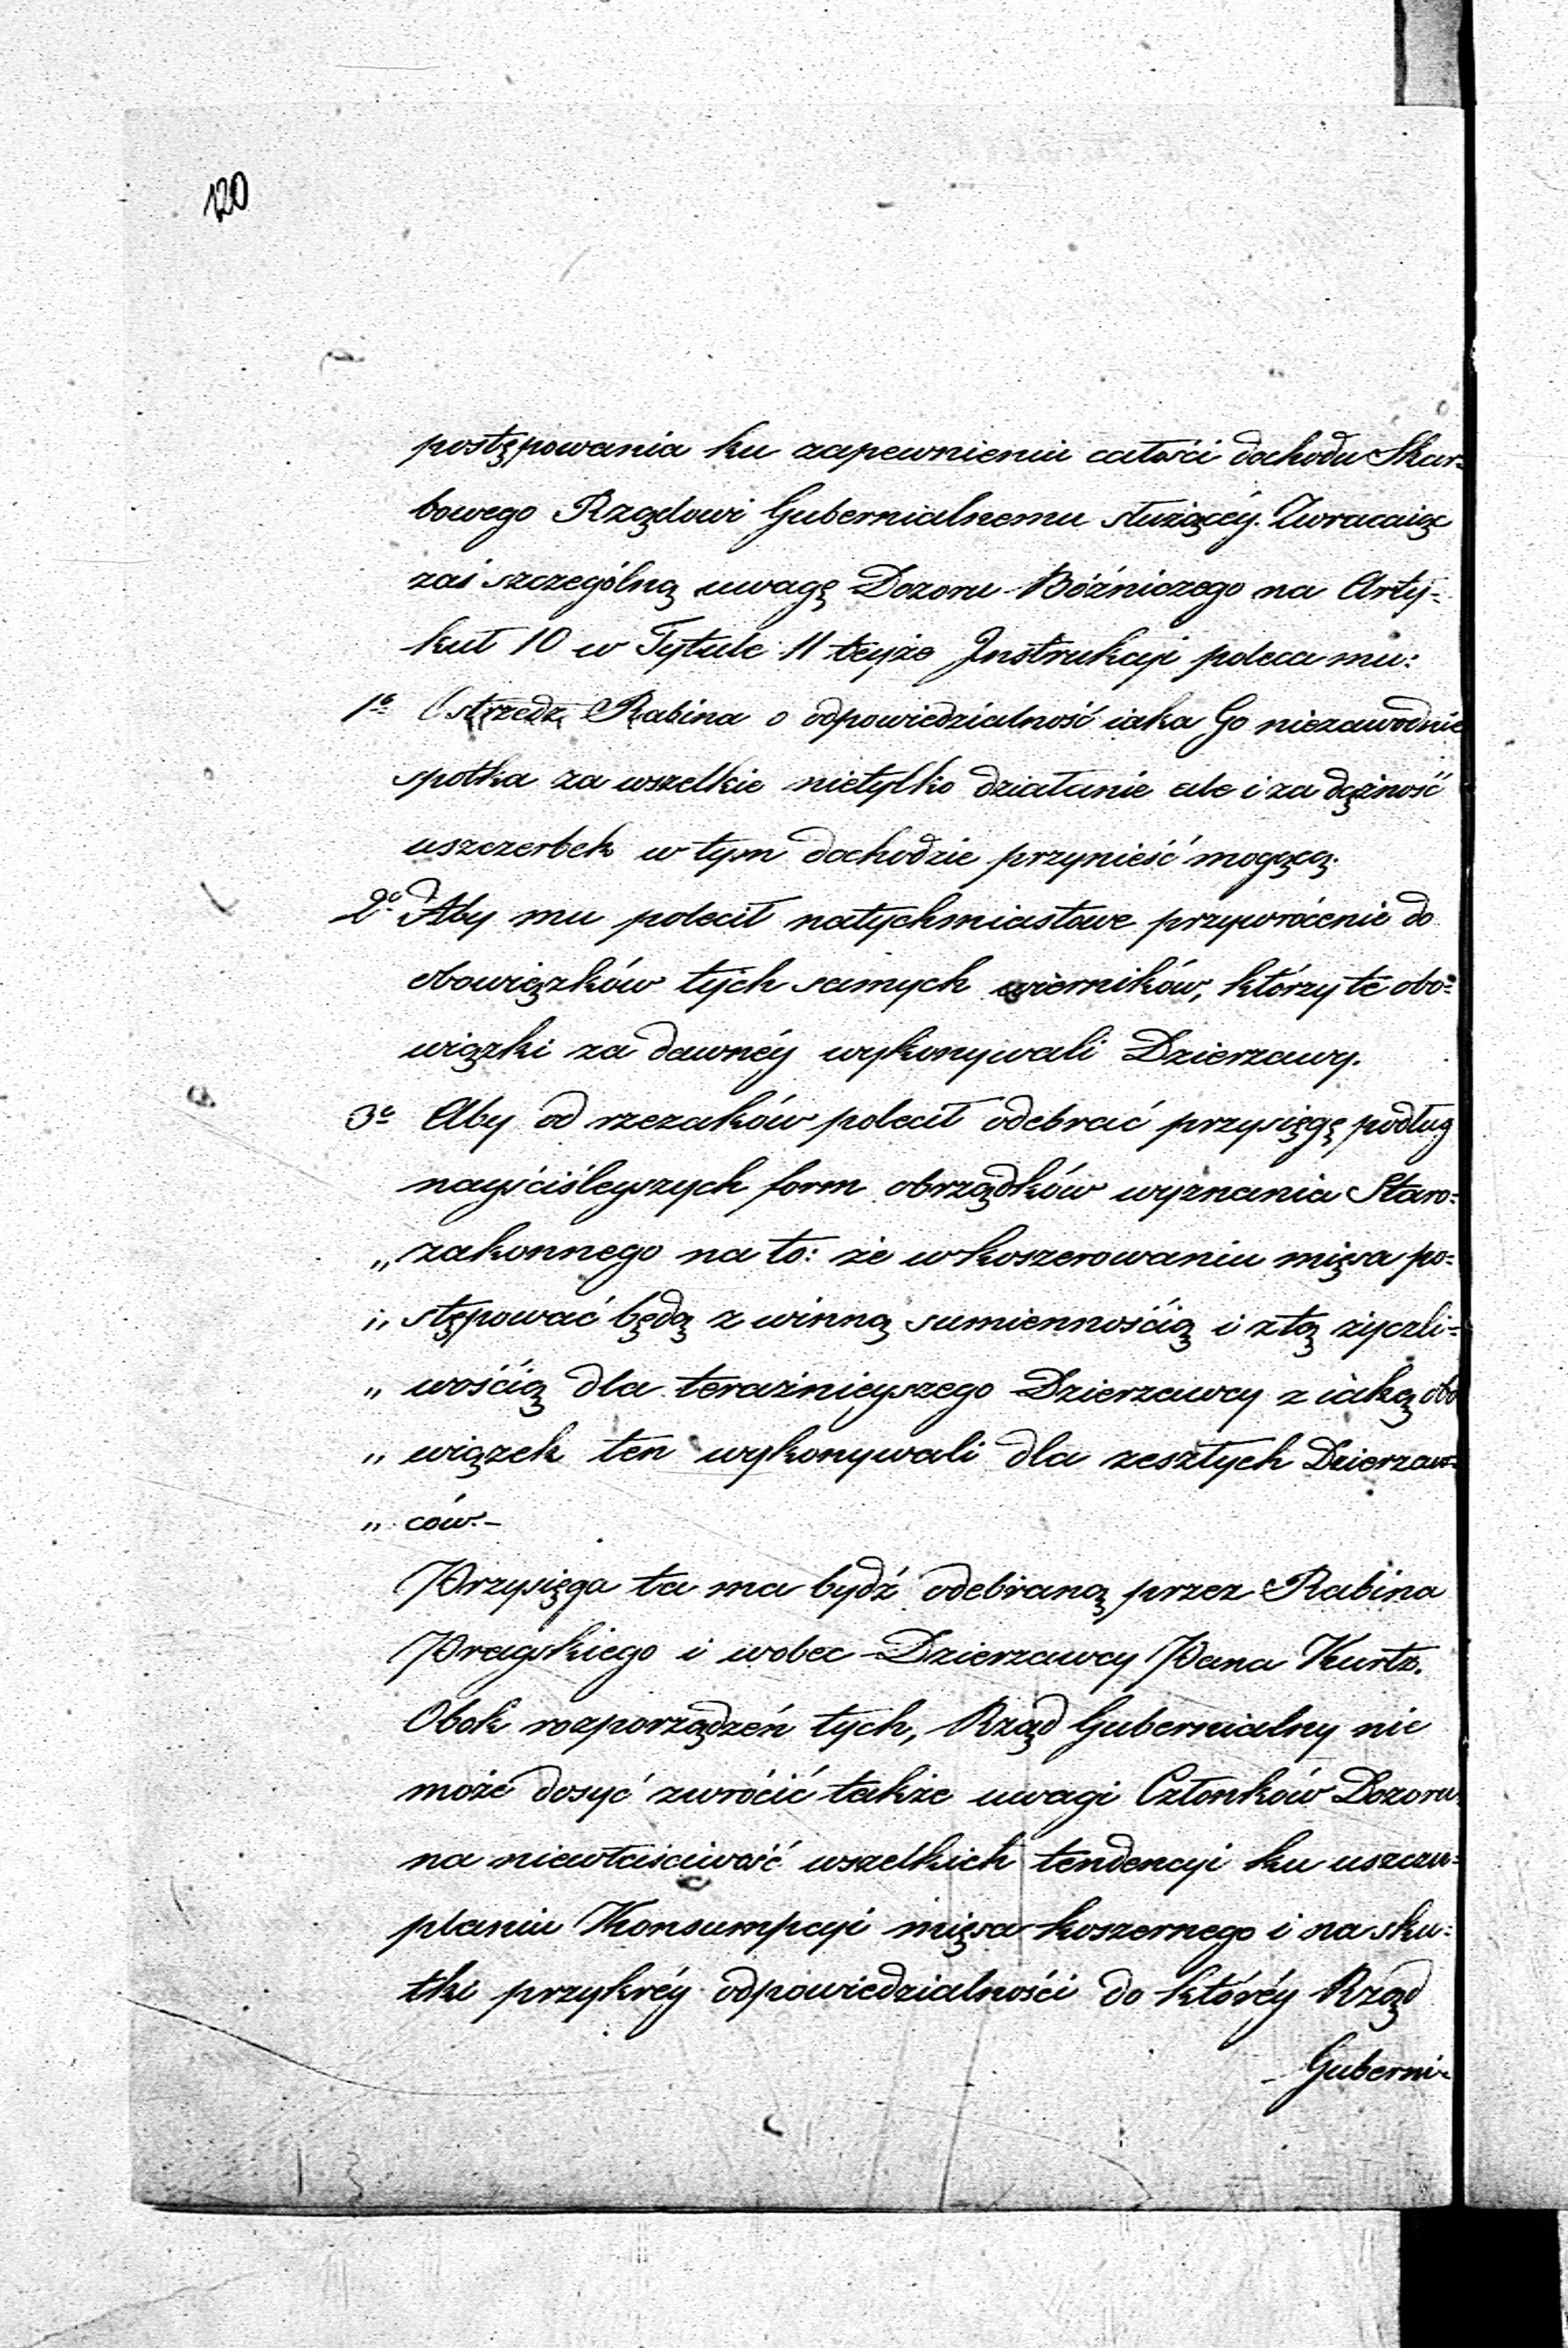 120
postępowania ku zapewnieniu całości dochodu Skar=
bowego Rządowi Gubernialnemu służącéy. Zwracaiąc
zaś szczególną uwagę Dozoru Bóżniczego na Arty=
kuł 10 w Tytule 11 teyże Instrukcyi poleca mu:
1º Ostrzedz Rabina o odpowiedzialność iaka Go niezawodnie
spotka za wszelkie nietylko działanie ale i za dążność
uszczerbek w tym dochodzie przynieść mogącą.
2º Aby mu polecił natychmiastowe przywrócenie do
obowiązków tych samych wierników, którzy te obo=
wiązki za dawnéy wykonywali Dzierzawy.
3º Aby od rzezaków polecił odebrać przysięgę podług
nayściśleyszych form obrządków wyznania Staro=
„ zakonnego na to: że w koszerowaniu mięsa po=
„ stępować będą z winną sumiennością i z tą życzli=
„ wością dla teraźnieyszego Dzierzawcy z iaką obo
„ wiązek ten wykonywali dla zeszłych Dzierzaw=
„ ców.—
Przysięga ta ma bydź odebraną przez Rabina
Pragskiego i wobec Dzierzawcy Pana Kurtz.
Obok rozporządzeń tych, Rząd Gubernialny nie
może dosyć zwrócić także uwagi Członków Dozoru
na niewłaściwość wszelkich tendencyi ku uszczu=
planiu Konsumpcyi mięsa koszernego i na sku=
tki przykréy odpowiedzialności do któréy Rząd
Guberni-